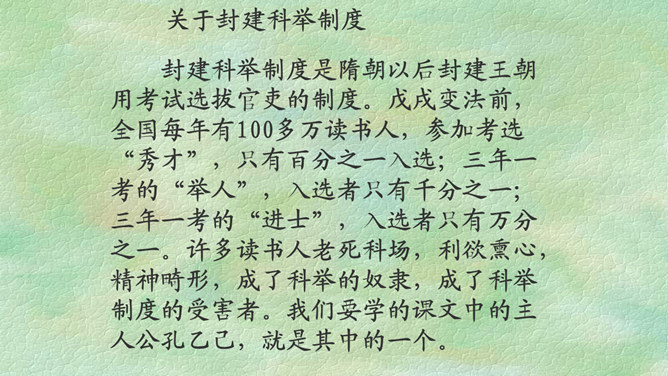 关于封建科举制度
封建科举制度是隋朝以后封建王朝
用考试选拔官吏的制度。戊戌变法前，
全国每年有100多万读书人，参加考选
“秀才”，只有百分之一入选；三年一
考的“举人”，入选者只有千分之一；
三年一考的“进士”，入选者只有万分
之一。许多读书人老死科场，利欲熏心，
精神畸形，成了科举的奴隶，成了科举
制度的受害者。我们要学的课文中的主
人公孔乙己，就是其中的一个。